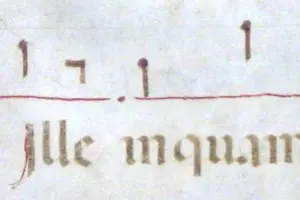 Ille inquam